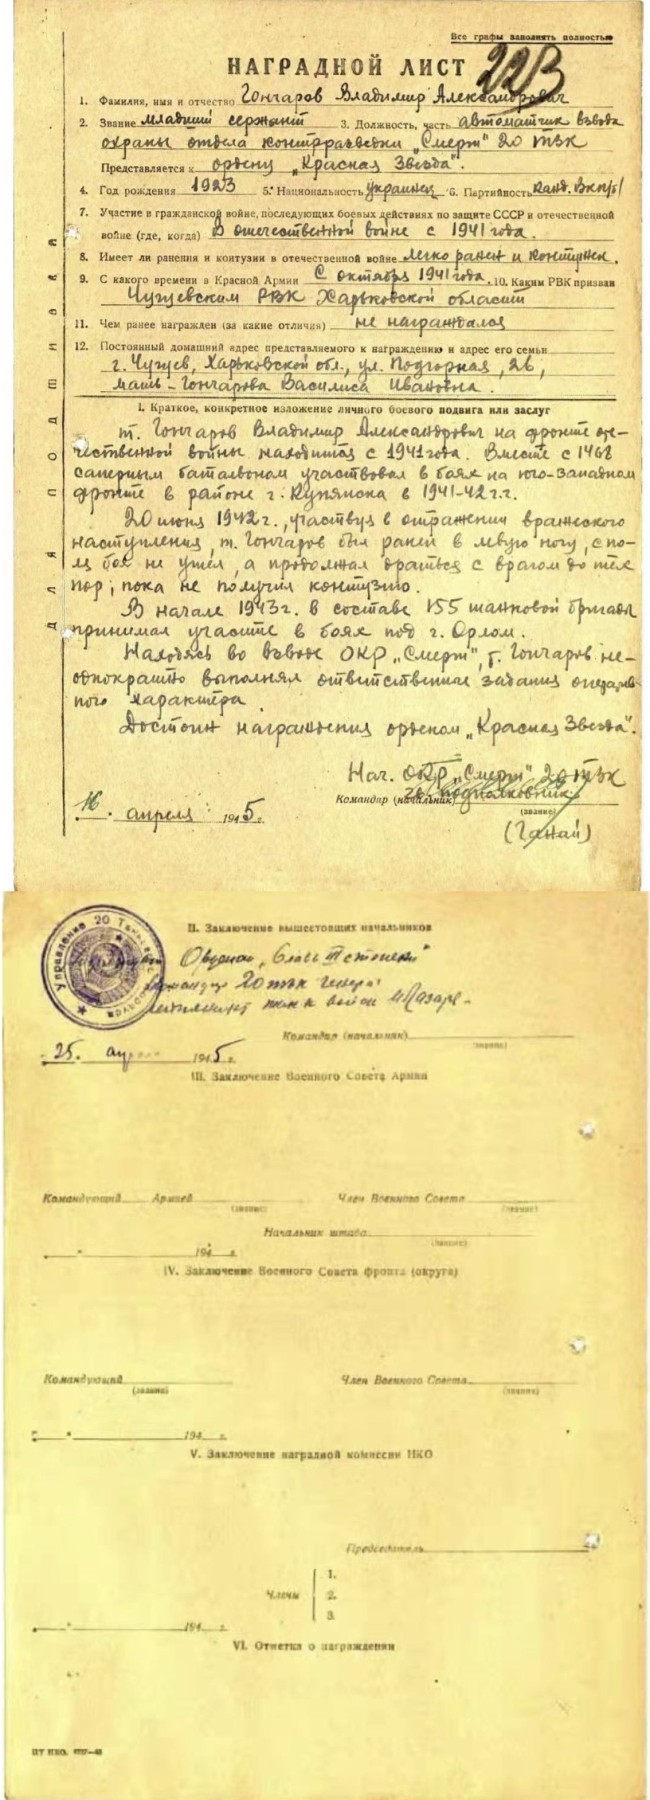 Все графы заполнять полностью
223
НАГРАДНОЙ ЛИСТ
1. Фамилия, имя и отчество Гончаров Владимир Александрович
2. Звание младший сержант 3. Должность, часть автоматчик взвода
охраны отдела контрразведки „Смерш" 20 ТЗК
Представляется к ордену „Красная Звезда".
4. Год рождения 1923 5. Национальность украинец 6. Партийность канд. ВКП/б/
7. Участие в гражданской войне, последующих боевых действиях по защите СССР и отечественной
войне (где, когда) В отечественной войне с 1941 года.
8. Имеет ли ранения и контузии в отечественной войне легко ранен и контужен.
9. С какого времени в Красной Армии С октября 1941 года. 10. Каким РВК призван
Чугуевским РВК Харьковской области
11. Чем ранее награжден (за какие отличия) не награждался
12. Постоянный домашний адрес представляемого к награждению и адрес его семьи
г. Чугуев, Харьковской обл., ул. Подгорная, 26,
мать – Гончарова Василиса Ивановна.
Для подшивки
I. Краткое, конкретное изложение личного боевого подвига или заслуг
т. Гончаров Владимир Александрович на фронте оте-
чественной войны находится с 1941 года. Вместе с 1468
саперным батальоном участвовал в боях на юго-западном
фронте в районе г. Купянска в 1941-42 г.г.
20 июня 1942 г., участвуя в отражении вражеского
наступления, т. Гончаров был ранен в левую ногу, с по-
ля боя не ушел, а продолжал драться с врагом до тех
пор, пока не получил контузию.
В начале 1943 г. в составе 155 танковой бригады
принимал участие в боях под г. Орлом.
Находясь во взводе ОКР „Смерш", т. Гончаров не-
однократно выполнял ответственные задания оператив-
ного характера.
Достоин награждения орденом „Красная Звезда".
Нач. ОКР „Смерш" 20 ТЗК
Командир (начальник) подполковник
(звание)
16. апреля 1945 г.
(Ганай)
Управление 20 Танкового
II. Заключение вышестоящих начальников
Орденом „Слава III степени"
Командир 20 ТЗК генерал
лейтенант танк войск Лазаре-
Командир (начальник)
(звание)
25. апреля 1945 г.
III. Заключение Военного Совета Армии
Командующий Армией
(звание)
Член Военного Совета
(звание)
Начальник штаба
(звание)
„ " 194 г.
IV. Заключение Военного Совета фронта (округа)
Командующий
(звание)
Член Военного Совета
(звание)
„ " 194 г.
V. Заключение наградной комиссии НКО
Председатель
Члены
1.
2.
3.
„ " 194 г.
VI. Отметка о награждении